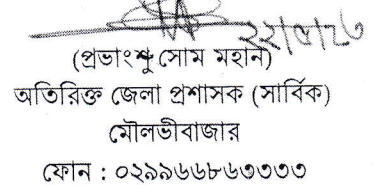 (প্রভাংশু সোম মহান)
অতিরিক্ত জেলা প্রশাসক (সার্বিক)
মৌলভীবাজার
ফোন : ০২৯৯৬৬৮৬৩৩৩৩